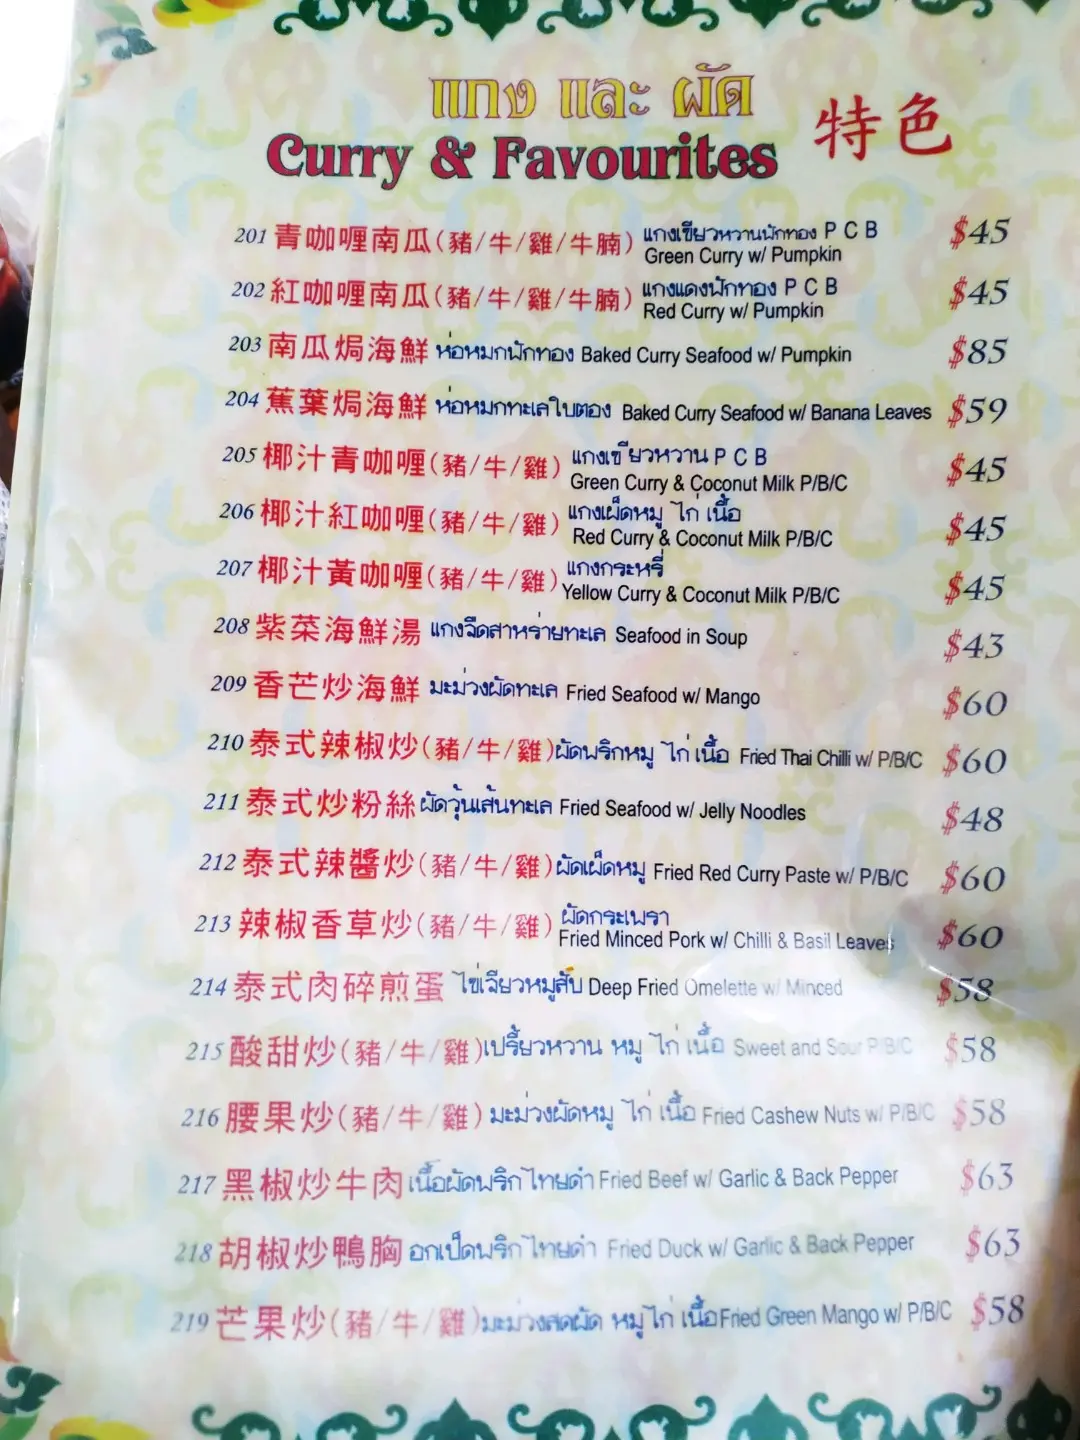 แกง และ ผัด
Curry & Favourites 特色
201 青咖喱南瓜(豬/牛/雞/牛腩) แกงเขียวหวานฟักทอง P C B $45
Green Curry w/ Pumpkin
202 紅咖喱南瓜(豬/牛/雞/牛腩) แกงแดงฟักทอง P C B $45
Red Curry w/ Pumpkin
203 南瓜焗海鮮 ห่อหมกฟักทอง Baked Curry Seafood w/ Pumpkin $85
204 蕉葉焗海鮮 ห่อหมกทะเลใบตอง Baked Curry Seafood w/ Banana Leaves $59
205 椰汁青咖喱(豬/牛/雞) แกงเขียวหวาน P C B $45
Green Curry & Coconut Milk P/B/C
206 椰汁紅咖喱(豬/牛/雞) แกงเผ็ดหมู ไก่ เนื้อ $45
Red Curry & Coconut Milk P/B/C
207 椰汁黃咖喱(豬/牛/雞) แกงกระหรี่ $45
Yellow Curry & Coconut Milk P/B/C
208 紫菜海鮮湯 แกงจืดสาหร่ายทะเล Seafood in Soup $43
209 香芒炒海鮮 มะม่วงผัดทะเล Fried Seafood w/ Mango $60
210 泰式辣椒炒(豬/牛/雞) ผัดพริกหมู ไก่ เนื้อ Fried Thai Chilli w/ P/B/C $60
211 泰式炒粉絲 ผัดวุ้นเส้นทะเล Fried Seafood w/ Jelly Noodles $48
212 泰式辣醬炒(豬/牛/雞) ผัดเผ็ดหมู Fried Red Curry Paste w/ P/B/C $60
213 辣椒香草炒(豬/牛/雞) ผัดกระเพรา $60
Fried Minced Pork w/ Chilli & Basil Leaves
214 泰式肉碎煎蛋 ไข่เจียวหมูสับ Deep Fried Omelette w/ Minced $58
215 酸甜炒(豬/牛/雞) เปรี้ยวหวาน หมู ไก่ เนื้อ Sweet and Sour P/B/C $58
216 腰果炒(豬/牛/雞) มะม่วงผัดหมู ไก่ เนื้อ Fried Cashew Nuts w/ P/B/C $58
217 黑椒炒牛肉 เนื้อผัดพริกไทยดำ Fried Beef w/ Garlic & Back Pepper $63
218 胡椒炒鴨胸 อกเป็ดพริกไทยดำ Fried Duck w/ Garlic & Back Pepper $63
219 芒果炒(豬/牛/雞) มะม่วงสดผัด หมู ไก่ เนื้อ Fried Green Mango w/ P/B/C $58